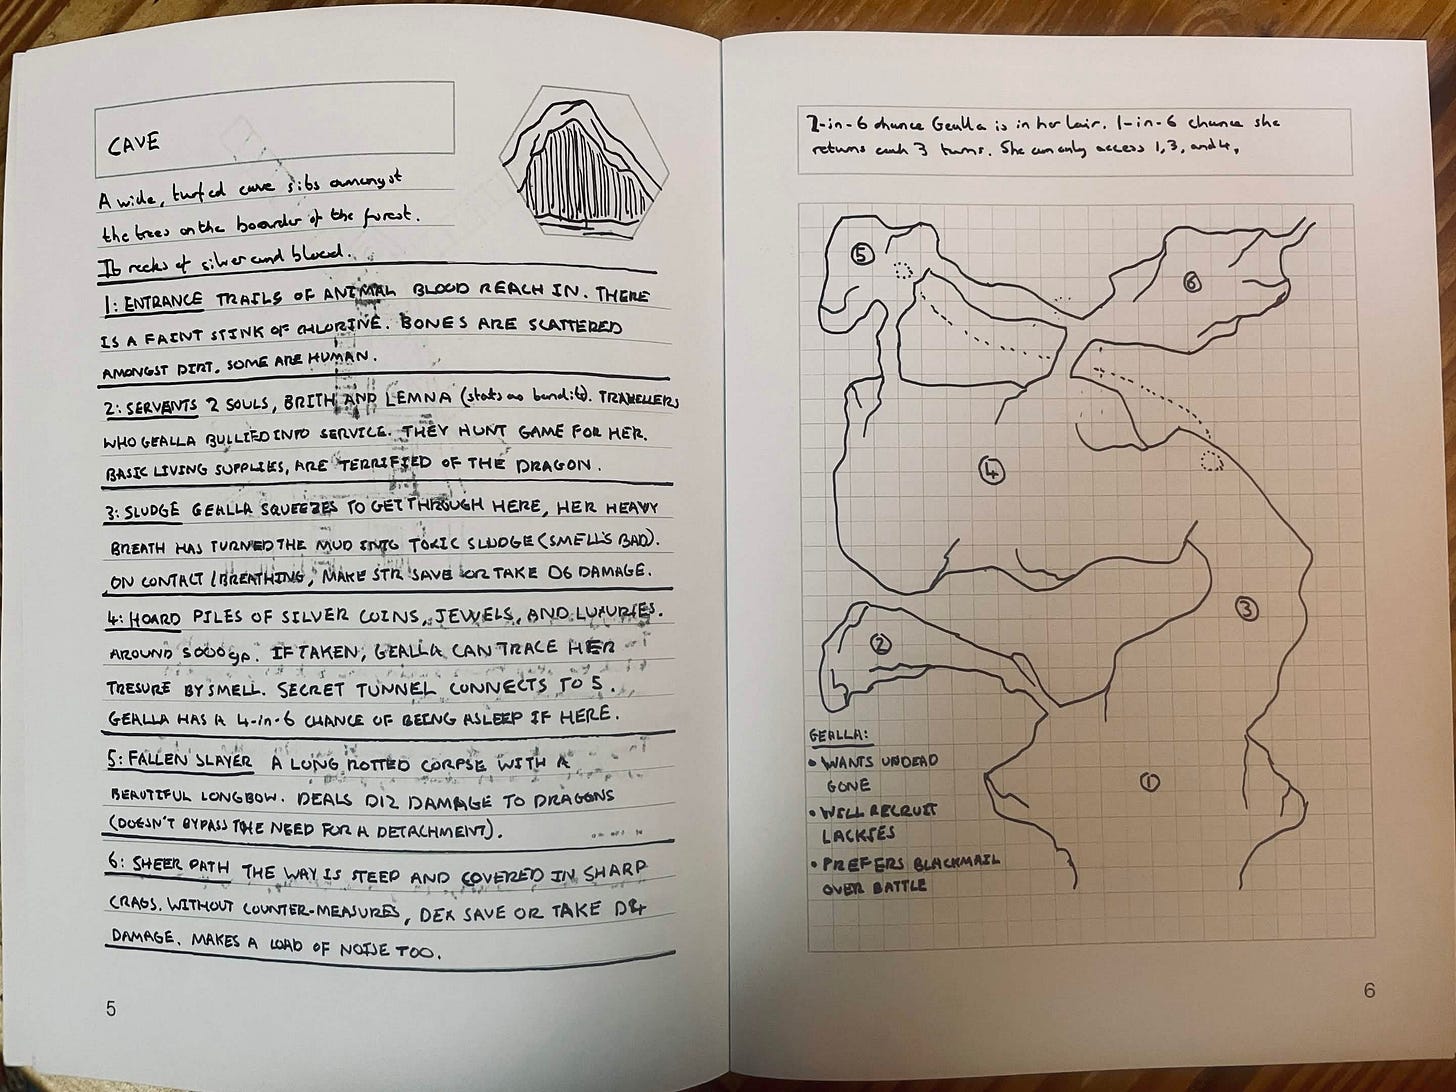 CAVE
A wide, turfed cave sits amongst
the trees on the boarder of the forest.
It reeks of silver and blood.
1: ENTRANCE TRAILS OF ANIMAL BLOOD REACH IN. THERE
IS A FAINT STINK OF CHLORINE. BONES ARE SCATTERED
AMONGST DIRT, SOME ARE HUMAN.
2: SERVANTS 2 SOULS, BRITH AND LEMNA (stats as bandits). TRAVELLERS
WHO GEALLA BULLIED INTO SERVICE. THEY HUNT GAME FOR HER.
BASIC LIVING SUPPLIES, ARE TERRIFIED OF THE DRAGON.
3: SLUDGE GEALLA SQUEEZES TO GET THROUGH HERE, HER HEAVY
BREATH HAS TURNED THE MUD INTO TOXIC SLUDGE (SMELLS BAD).
ON CONTACT/BREATHING, MAKE STR SAVE OR TAKE D6 DAMAGE.
4: HOARD PILES OF SILVER COINS, JEWELS, AND LUXURIES.
AROUND 5000gp. IF TAKEN, GEALLA CAN TRACE HER
TRESURE BY SMELL. SECRET TUNNEL CONNECTS TO 5.
GEALLA HAS A 4-in-6 CHANCE OF BEING ASLEEP IF HERE.
5: FALLEN SLAYER A LONG ROTTED CORPSE WITH A
BEAUTIFUL LONGBOW. DEALS D12 DAMAGE TO DRAGONS
(DOESN'T BYPASS THE NEED FOR A DETACHMENT).
6: SHEER PATH THE WAY IS STEEP AND COVERED IN SHARP
CRAGS. WITHOUT COUNTER-MEASURES, DEX SAVE OR TAKE D4
DAMAGE. MAKES A LOAD OF NOISE TOO.
5
2-in-6 chance Gealla is in her lair. 1-in-6 chance she
returns each 3 turns. She can only access 1, 3, and 4.
5
6
4
3
2
1
GEALLA:
• WANTS UNDEAD
GONE
• WILL RECRUIT
LACKIES
• PREFERS BLACKMAIL
OVER BATTLE
6